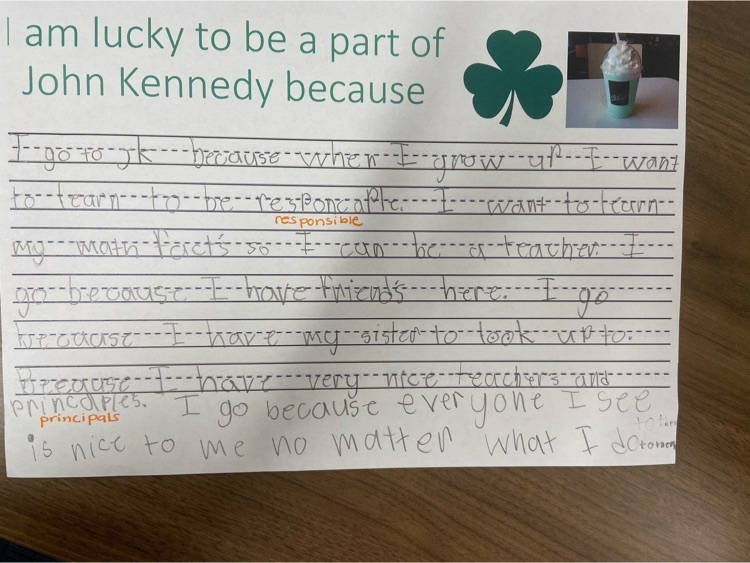 I am lucky to be a part of
John Kennedy because
I go to jk because when I grow up I want
to learn to be responcaple. I want to learn
responsible
my math facts so I can be a teacher. I
go because I have friends here. I go
because I have my sister to look up to.
Because I have very nice teachers and
princaples. I go because everyone I see
principals
is nice to me no matter what I do